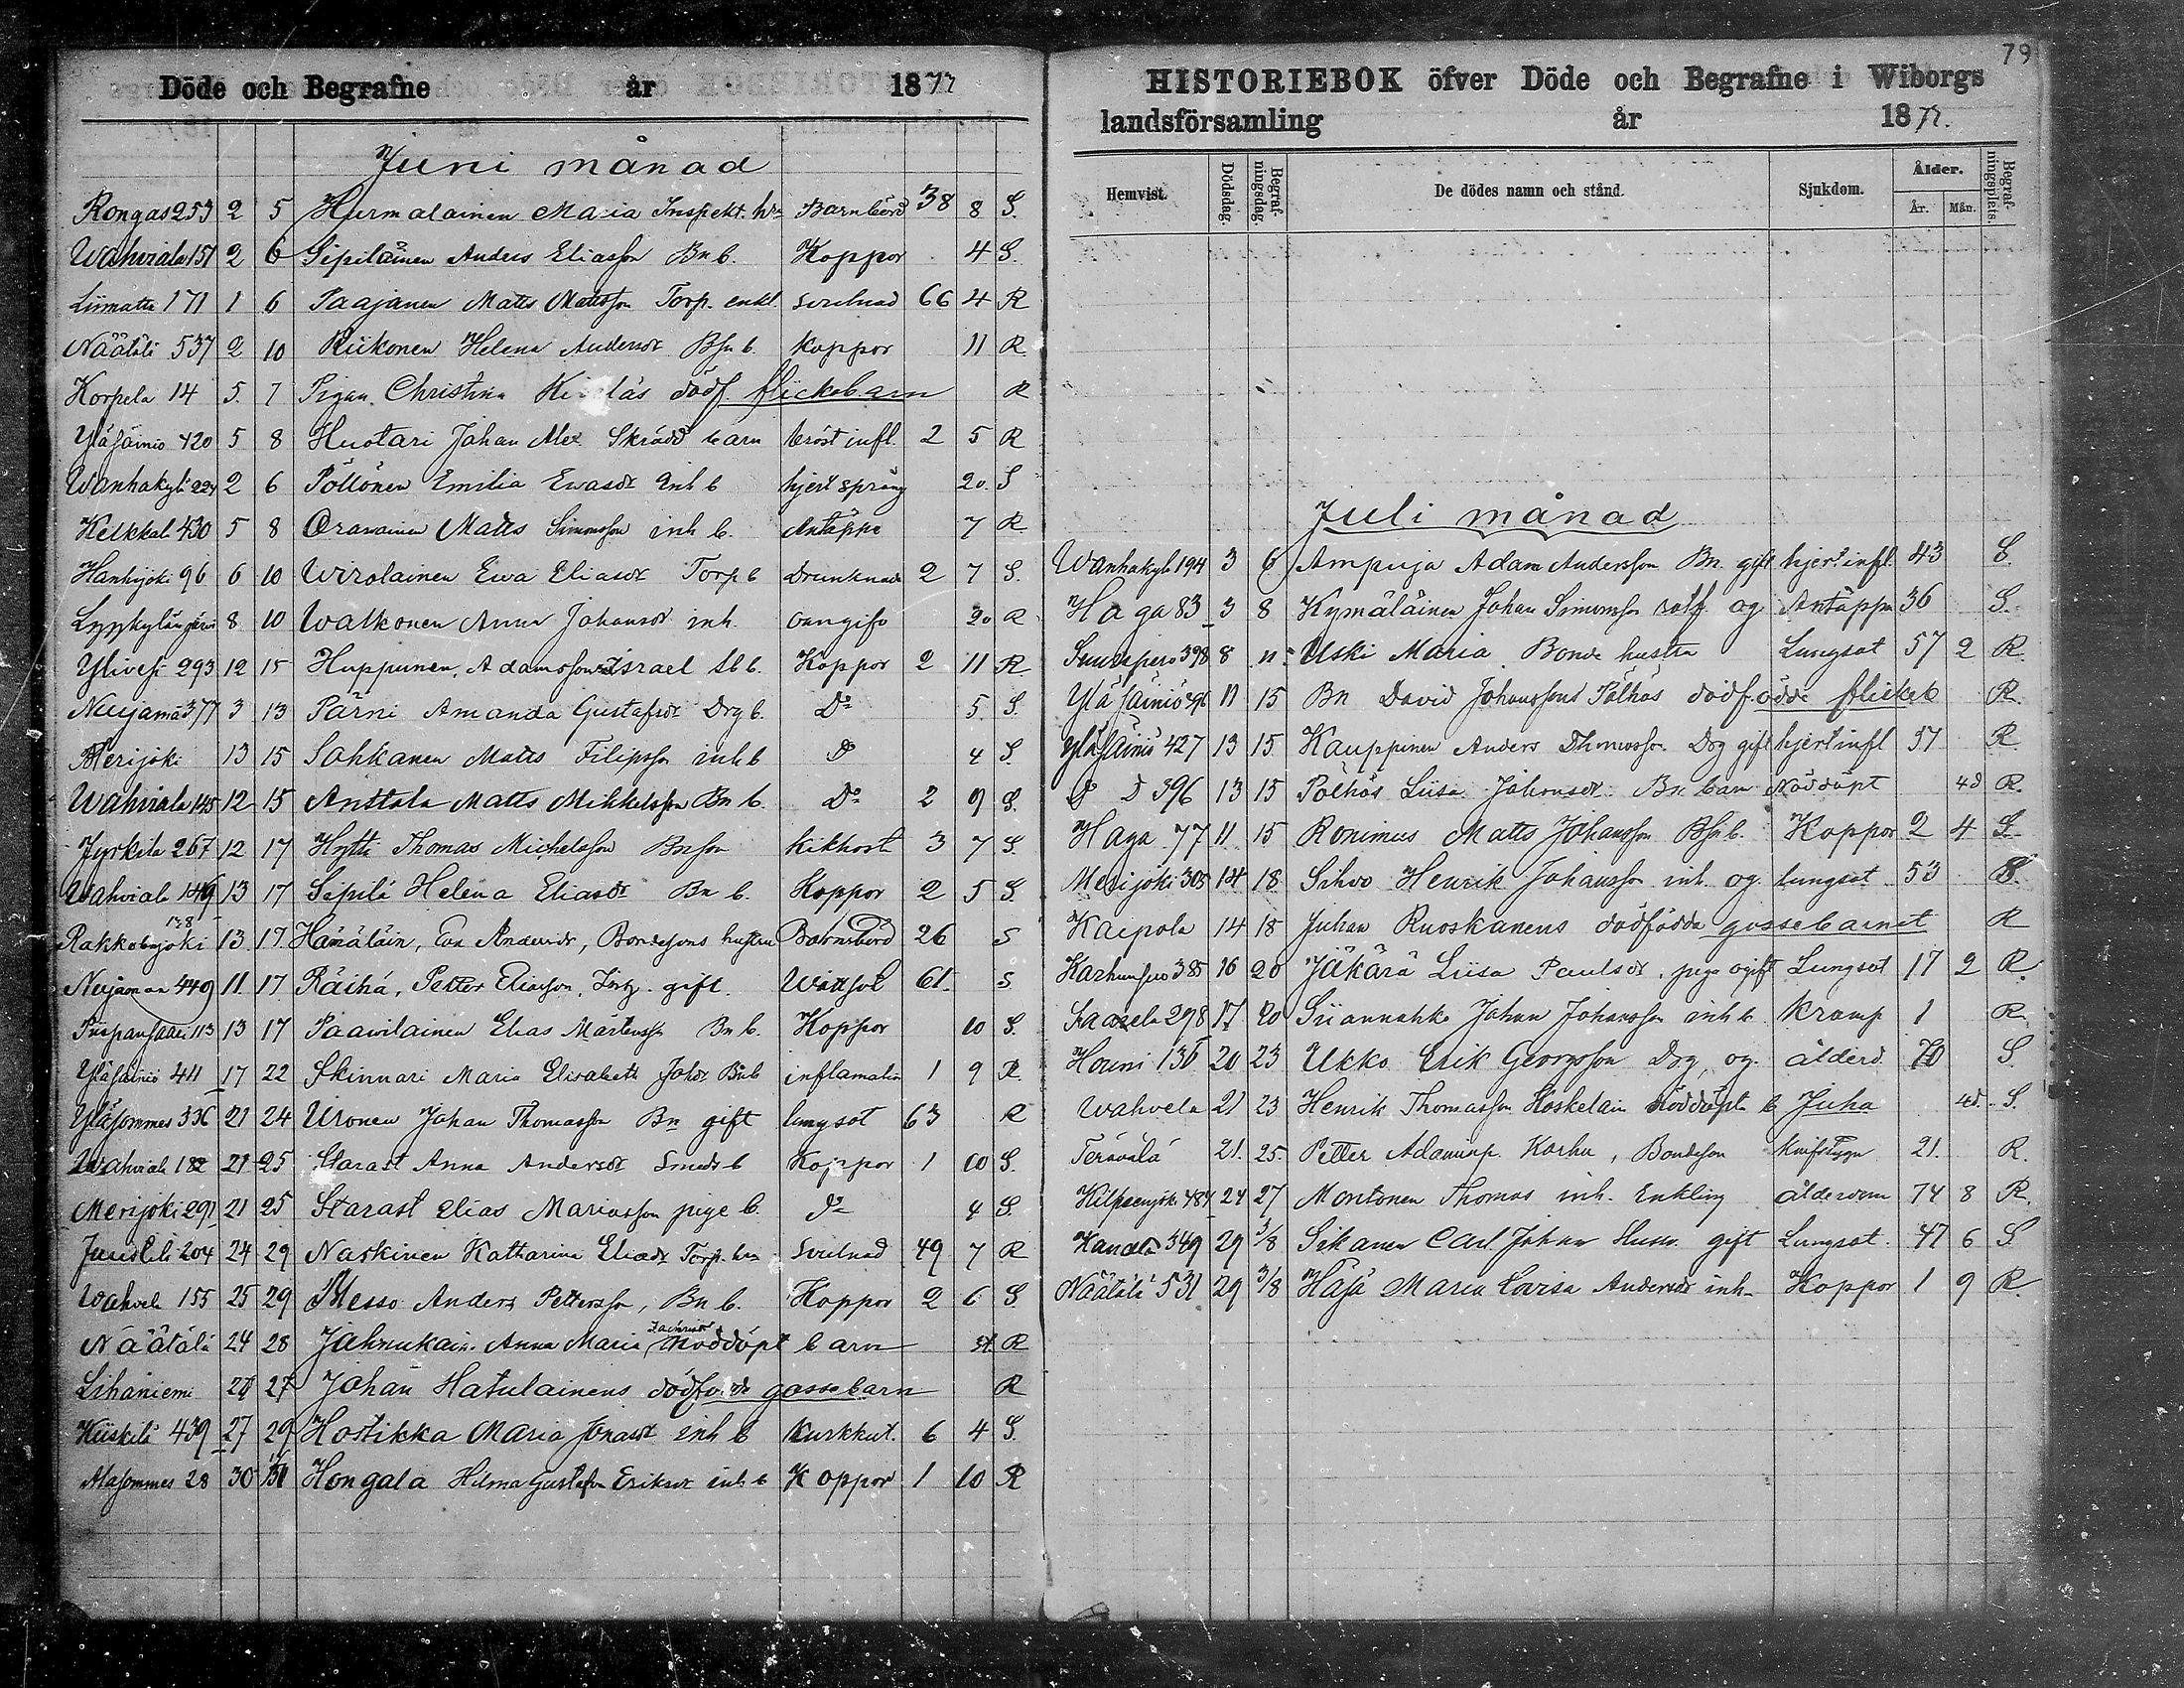 Döde och Begrafne år 1872
Juni månad
Rongas 253 2 5 Hurmalainen Maria Inspekt. hu Barnbörd 38 8 S.
Wahviala 151 2 6 Sipiläinen Anders Eliasson Bn b. Koppor 4 S.
Liimatta 171 1 6 Paajanen Matts Mattsson Torp. enkl. svulnad 66 4 R
Näätälä 537 2 10 Riikonen Helena Andersdr Bsn b. Koppor 11 R
Korpela 14 5. 7 Pigan Christina dödf. flickebarn R
Yläsäiniö 420 5 8 Huotari Johan Alex Skrädd barn bröst infl. 2 5 R
Wanhakylä 224 2 6 Pöllönen Emilia Ewasdr inh b hjert språng 20. S
Kelkkala 430 5 8 Orawainen Matts Simonsson inh b. Andtäppa 7 R
Hanhijoki 96 6 10 Wirolainen Ewa Eliasdr Torp b Drunknade 2 7 S.
8 10 Walkonen Anna Johansdr inh. 20 R
Ylivesi 293 12 15 Huppunen, Adamsson Israel b. Koppor 2 11 R
Nuijamä 377 3 13 Pärni Amanda Gustafsdr Drg b. Do 5. S.
Merijoki 13 15 Sahkanen Matts Filipsson inh b D 4 S.
Wahviala 145 12 15 Anttola Matts Mikkelsson Bn b. Do 2 9 S.
Jyrkilä 267 12 17 Hytti Thomas Michelsson Bnson kikhost 3 7 S.
Wahviala 149 13 17 Sipilä Helena Eliasdr Bn b. Koppor 2 5 S.
138
Rakkolanjoki 13. 17. Hämäläin, Eva Andersdr, Bondesons hustru Barnsbörd 26 S
Nuijaman 449 11. 17 Räihä, Petter Eliasson, gift. Wattsot 61. S
Piispansaari 113 13 17 Paavilainen Elias Mårtensson Bn b. Koppor 10 S.
Yläsäiniö 411 17 22 Skinnari Maria Elisabeth Johdr Bn b inflamation 1 9 R
Yläsommes 336 21 24 Uronen Johan Thomasson Bn gift lungsot 63 R
Wahviala 182 21 25 Starast Anna Andersdr Smeds b Koppor 1 10 S.
Merijoki 291 21 25 Starast Elias Mariasson pige b. Do 4 S.
Juustila 204 24 29 Naskinen Katharina Eliasdr Torp. hu svulnad 49 7 R
Wahvela 155 25 29 Messo Anders Pettersson, Bn b. Koppor 2 6 S
Näätälä 24 28 Jahnukain. Anna Maria nöddöpt barn R
Lihaniemi 27 Johan Hatulainens dödfödde gossebarn R
Kiiskilä 439 27 29 Hostikka Maria Jonasdr inh b Kurkkut. 6 4 S.
Alasommes 28 30 Hongala Hilma Gustafva Eriksdr inh b Koppor 1 10 R
79
HISTORIEBOK öfver Döde och Begrafne i Wiborgs
landsförsamling år 1872.
Hemvist. Dödsdag. Begrafningsdag. De dödes namn och stånd. Sjukdom. Ålder. År. Mån. Begrafningsplats.
Juli månad
Wanhakylä 194 3 6 Ampuja Adam Andersson Bn. gift hjert infl. 43 S.
Haga 83 3 8 Kymäläinen Johan Simonsson og Andtäppa 36 S.
Suurpero 398 8 11 Uski Maria Bonde hustru Lungsot 57 2 R.
Yläsäiniö 396 11 15 Bn David Johanssons Pölhös dödfödde flickeb R.
Yläsäiniö 427 13 15 Kauppinen Anders Thomasson Drg gift hjert infl 37 R
D D 396 13 15 Pölhös Liisa Johansdr Bn barn Nöddöpt 4d R.
Haga 77 11 15 Ronimus Matts Johansson Bsn b. Koppor 2 4 S.
Merijoki 305 14 18 Sihvo Henrik Johansson inh. og. lungsot 53 S.
Kaipola 14 18 Juhan Ruoskanens dödfödda gossebarnet R
Karhusuo 385 16 20 Jäkärä Liisa Paulsdr, piga ogift Lungsot 17 2 R.
Saarela 298 17 20 Siiannahka Johan Johansson inh b Kramp 1 R
Houni 136 20 23 Ukko Erik Georgsson Drg, og. ålderd. 70 S.
Wahvela 21 23 Henrik Thomasson Koskelain nöddöpt b Juha 4d. S.
Terävälä 21. 25. Petter Adamsp. Karhu, Bondeson Knifstygn 21. R.
Kilpeenjoki 487 24 27 Montonen Thomas inh. Enkling ålderdom 74 8 R.
Kanala 349 29 3/8 Sikanen Carl Johan gift Lungsot. 47 6 S.
Näätälä 531 29 3/8 Häjä Maria Lovisa Andersdr inh Koppor 1 9 R.